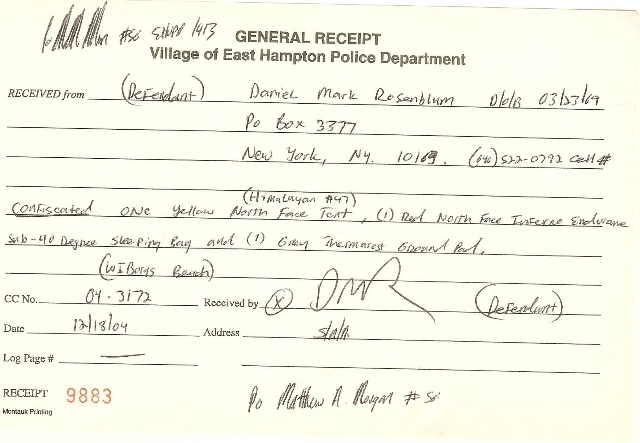 Po #56 EHVPD 1413
GENERAL RECEIPT
Village of East Hampton Police Department
RECEIVED from (Defendant) Daniel Mark Rosenblum D/O/B 03/23/69
Po Box 3377
New York, NY. 10163. (646) 522-0792 Cell #
(Himalayan #47)
Confiscated one Yellow North Face Tent, (1) Red North Face Inferno Endurance
Sub-40 Degree Sleeping Bag and (1) Gray Thermarest Ground Pad.
(WIBorgs Beach)
CC No. 04-3172 Received by (X) DMR (Defendant)
Date 12/18/04 Address S/A/A
Log Page # —
RECEIPT 9883
Po Matthew A. Morgan # 56
Montauk Printing